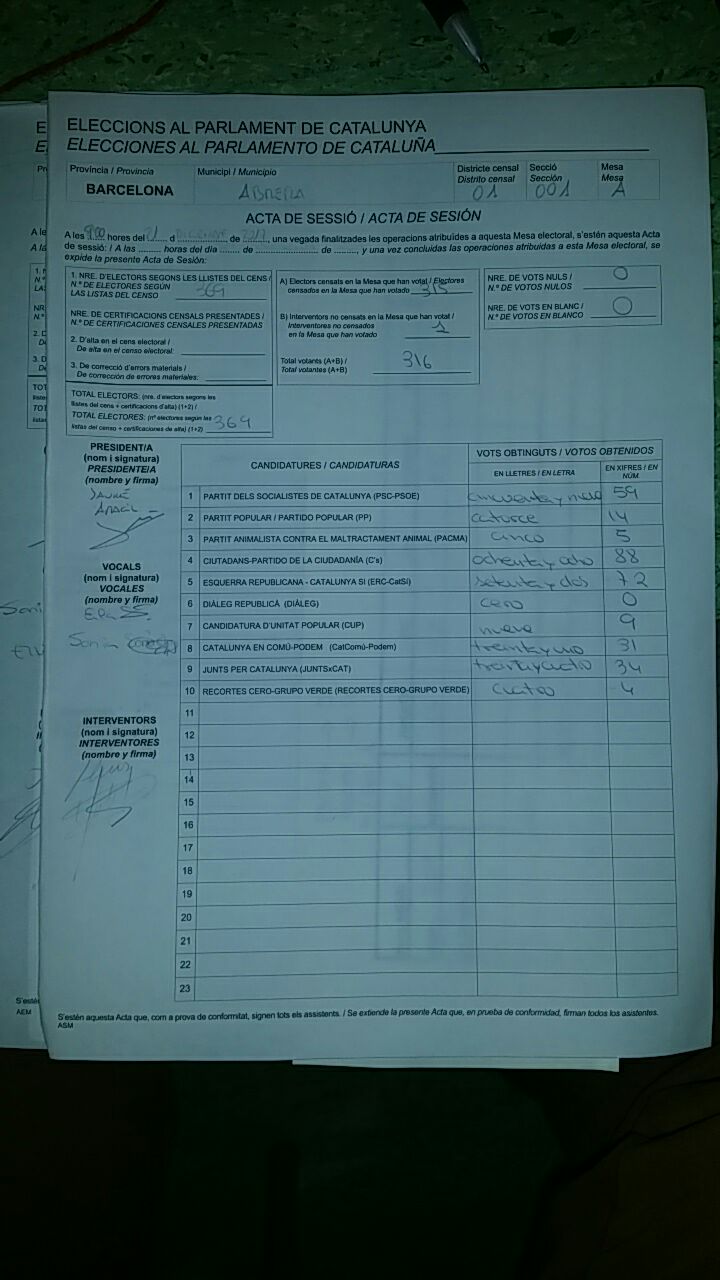 ELECCIONS AL PARLAMENT DE CATALUNYA
ELECCIONES AL PARLAMENTO DE CATALUÑA
Província / Provincia
BARCELONA
Municipi / Municipio
ABRERA
Districte censal
Distrito censal
01
Secció
Sección
001
Mesa
Mesa
A
ACTA DE SESSIÓ / ACTA DE SESIÓN
A les 9:00 hores del 21 d DICIEMBRE de 2017, una vegada finalitzades les operacions atribuïdes a aquesta Mesa electoral, s'estén aquesta Acta
de sessió: / A las ........ horas del día ....... de ...................... de ........, y una vez concluidas las operaciones atribuidas a esta Mesa electoral, se
expide la presente Acta de Sesión:
1. NRE. D'ELECTORS SEGONS LES LLISTES DEL CENS /
N.º DE ELECTORES SEGÚN
LAS LISTAS DEL CENSO 369
NRE. DE CERTIFICACIONS CENSALS PRESENTADES /
N.º DE CERTIFICACIONES CENSALES PRESENTADAS
2. D'alta en el cens electoral /
De alta en el censo electoral:
3. De correcció d'errors materials /
De corrección de errores materiales:
TOTAL ELECTORS: (nre. d'electors segons les
llistes del cens + certificacions d'alta) (1+2) /
TOTAL ELECTORES: (nº electores según las
listas del censo + certificaciones de alta) (1+2) 369
A) Electors censats en la Mesa que han votat / Electores
censados en la Mesa que han votado 315
B) Interventors no censats en la Mesa que han votat /
Interventores no censados
en la Mesa que han votado 1
Total votants (A+B) /
Total votantes (A+B) 316
NRE. DE VOTS NULS /
N.º DE VOTOS NULOS 0
NRE. DE VOTS EN BLANC /
N.º DE VOTOS EN BLANCO 0
PRESIDENT/A
(nom i signatura)
PRESIDENTE/A
(nombre y firma)
JAUME
VOCALS
(nom i signatura)
VOCALES
(nombre y firma)
Sonia
INTERVENTORS
(nom i signatura)
INTERVENTORES
(nombre y firma)
CANDIDATURES / CANDIDATURAS
VOTS OBTINGUTS / VOTOS OBTENIDOS
EN LLETRES / EN LETRA
EN XIFRES / EN NÚM.
1 PARTIT DELS SOCIALISTES DE CATALUNYA (PSC-PSOE) cincuenta y nueve 59
2 PARTIT POPULAR / PARTIDO POPULAR (PP) catorce 14
3 PARTIT ANIMALISTA CONTRA EL MALTRACTAMENT ANIMAL (PACMA) cinco 5
4 CIUTADANS-PARTIDO DE LA CIUDADANÍA (C's) ochenta y ocho 88
5 ESQUERRA REPUBLICANA - CATALUNYA SÍ (ERC-CatSí) setenta y dos 72
6 DIÀLEG REPUBLICÀ (DIÀLEG) cero 0
7 CANDIDATURA D'UNITAT POPULAR (CUP) nueve 9
8 CATALUNYA EN COMÚ-PODEM (CatComú-Podem) treinta y uno 31
9 JUNTS PER CATALUNYA (JUNTSxCAT) treinta y cuatro 34
10 RECORTES CERO-GRUPO VERDE (RECORTES CERO-GRUPO VERDE) cuatro 4
11
12
13
14
15
16
17
18
19
20
21
22
23
S'estén aquesta Acta que, com a prova de conformitat, signen tots els assistents. / Se extiende la presente Acta que, en prueba de conformidad, firman todos los asistentes.
ASM